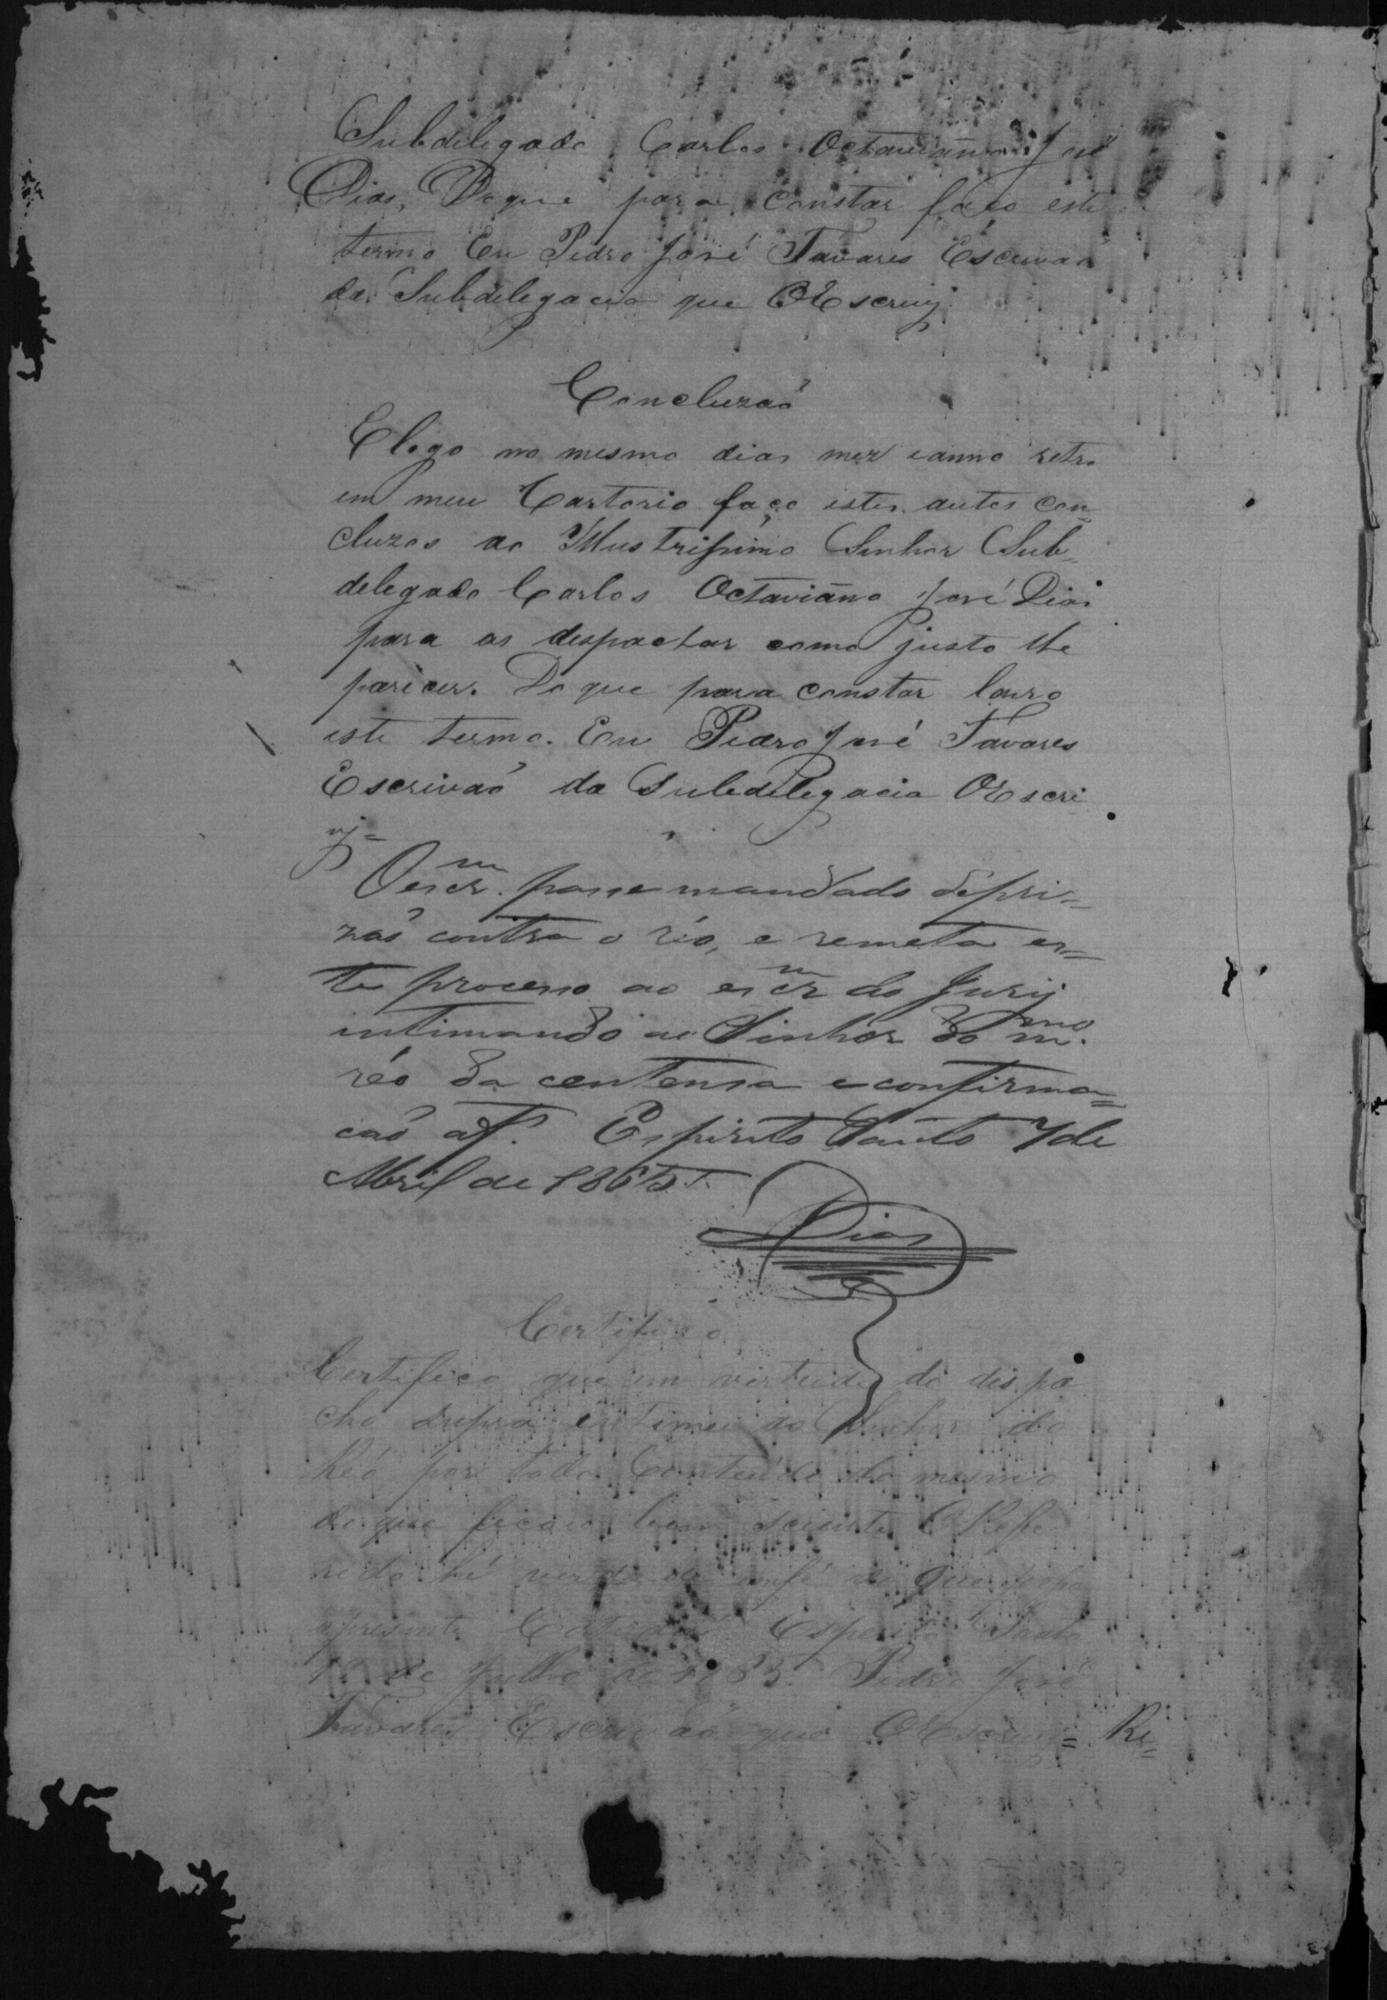 Subdelegado Carlos Octaviano José
Dias, Do que para constar faço este
termo Eu Pedro José Tavares Escrivaõ
da Subdelegacia que OEscrevy.
Concluzaõ
E logo no mesmo dia mez eanno retro
em meu Cartorio faço estes autos con-
cluzos ao Illustrissimo Senhor Sub-
delegado Carlos Octaviano José Dias
para os despachar como justo lhe
parecer. Do que para constar lavro
este termo. Eu Pedro José Tavares
Escrivaõ da Subdelegacia OEscri
vj=
O escr.m passe mandado depri=
zaõ contra o réo, e remeta es=
te processo ao escr.m do Jury
intimando ao Sinhor do m.mo
réo da centensa econfirma=
caõ Espirito Santo 7 de
Abril de 1865.
Dias
Certifico
Certifico que em virtude do dispa
cho supra intimei ao Senhor do
Réo por todo Contéudo do mesmo
do que ficou bem sciente ORefe
rido hé verdade do que
apresente Espirito Santo
de Julho de 1865. Pedro José
Tavares Escrivaõ que OEscrevy= Ri=